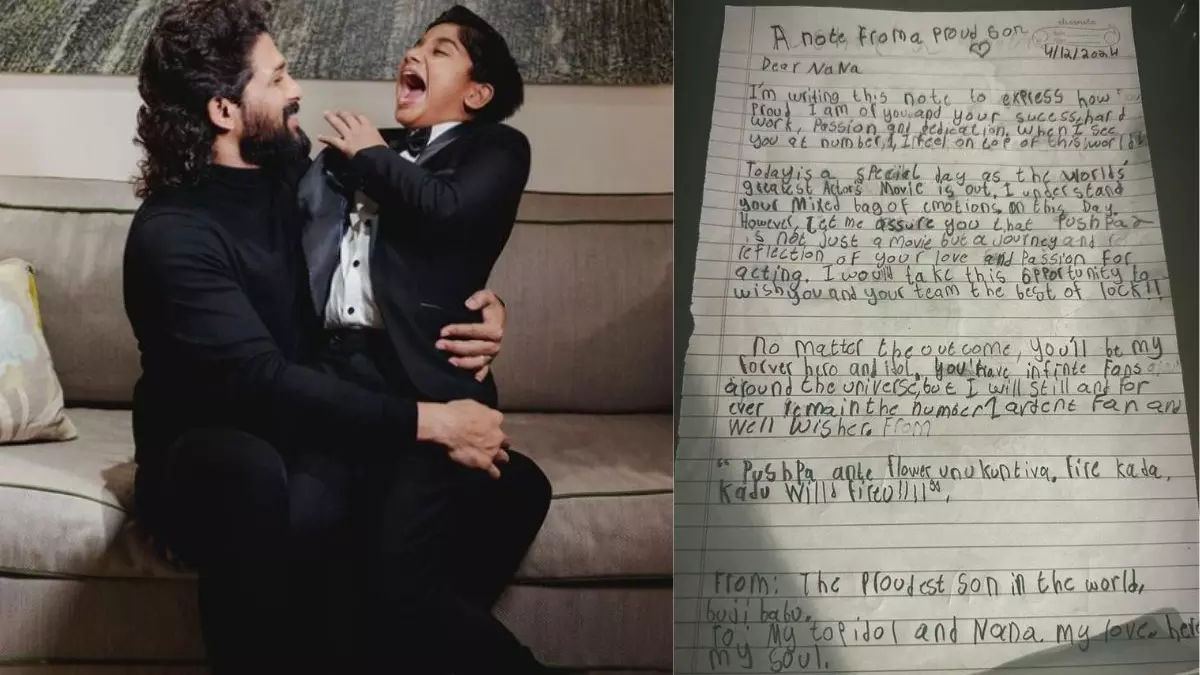 A note From a Proud Son
classmate
4/12/2024
Dear NaNa
I'm writing this note to express how
Proud I am of you and your sucess, hard
work, Passion and dedication, When I see
you at number, 1, I feel on top of this world
Today is a special day as the worlds'
greatest Actor's Movie is out. I understand
your Mixed bag of emotions, on this Day.
However, Let me assure you that Pushpa 2
is not just a movie but a Journey and
reflection of your love and Passion for
acting. I would take this opportunity to
wish you and your team the best of lock!!
No matter the outcome, you'll be my
forver hero and idol. you'll have infinte Fans
around the universe, but I will still and for
ever remain the number 1 ardent Fan and
well wisher. From
"Pushpa ante flower unukuntiva, fire kada,
kadu Willd fireo!!!!",
From: The Proudest son in the world,
buji babu.
To: My top idol and NaNa. my love,
my soul.